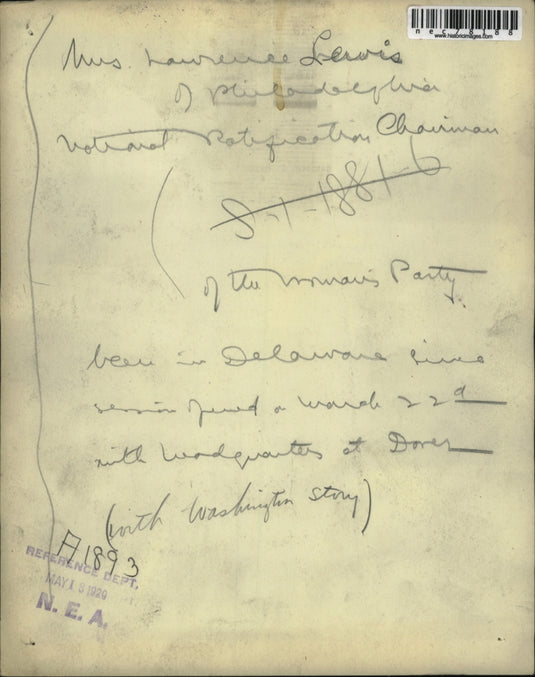 nec78188
www.historicimages.com
Mrs. Lawrence Lewis
of Philadelphia
National Ratification Chairman
S-1-1881-6
of the Woman's Party.
been in Delaware since
session on March 22d
with Headquarters at Dover
(with Washington Story)
A1893
REFERENCE DEPT.
MAY 1929
N. E. A.